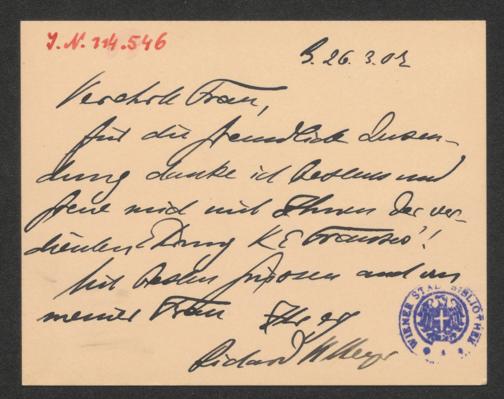 J.N. 114.546
B. 26.3.02
Verehrte Frau,
für die freundliche Zusen-
dung danke ich bestens und
freue mich mit Ihnen der ver-
dienten K E Franzos'!
Mit besten Grüssen auch an
meiner Frau Ihr erg
Richard M Meyer
WIENER STADTBIBLIOTHEK